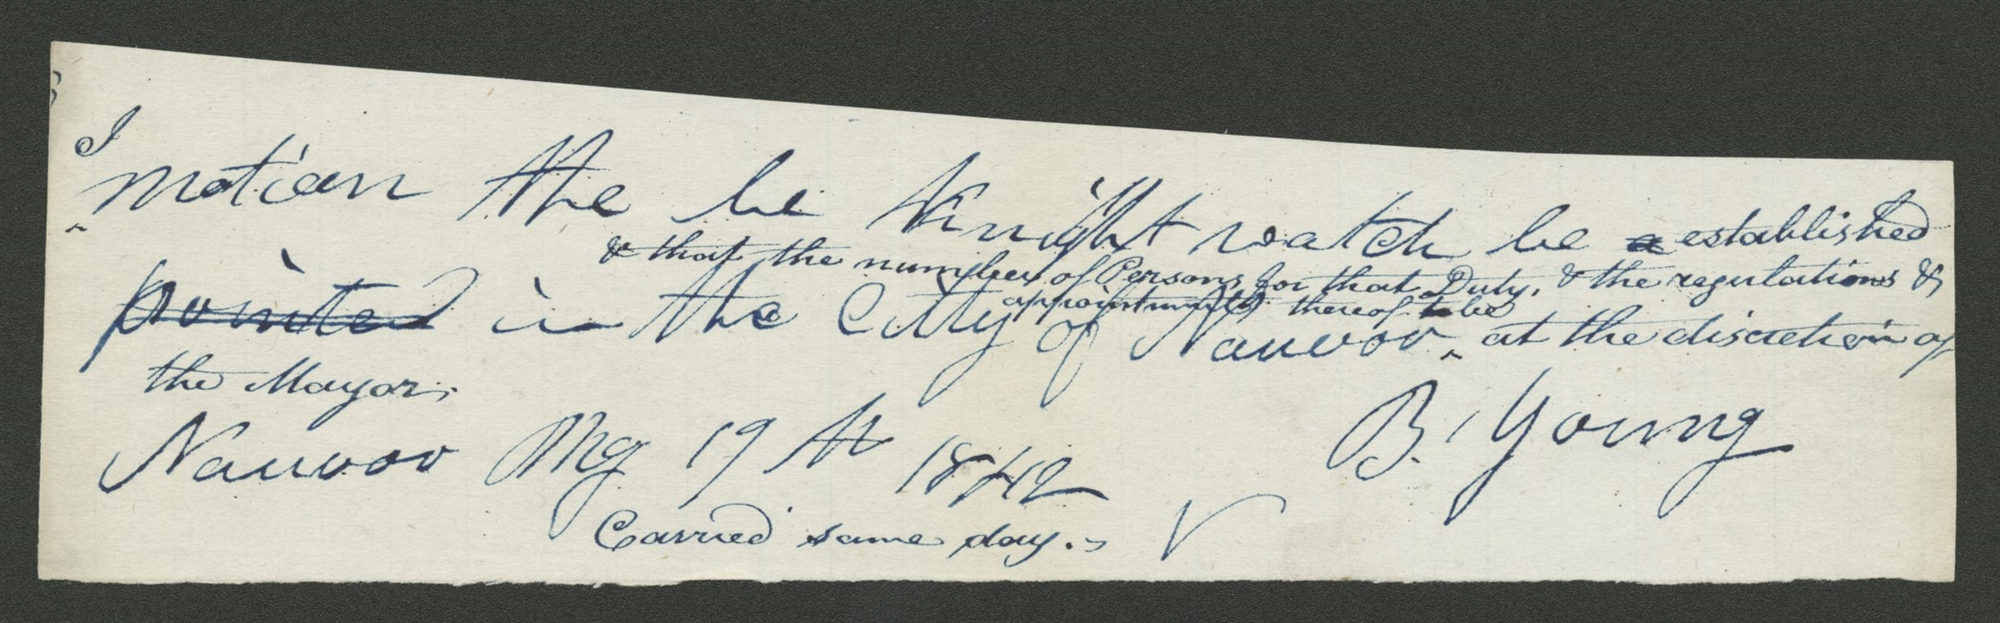 I
motian the be Knight watch be a established
& that the number of Persons for that Duty, & the regulations &
appointment thereof to be
pointed in the Citty of Nauvoo at the discretion of
the Mayor.
Nauvoo My 19 th 1842
B. Young
Carried same day.